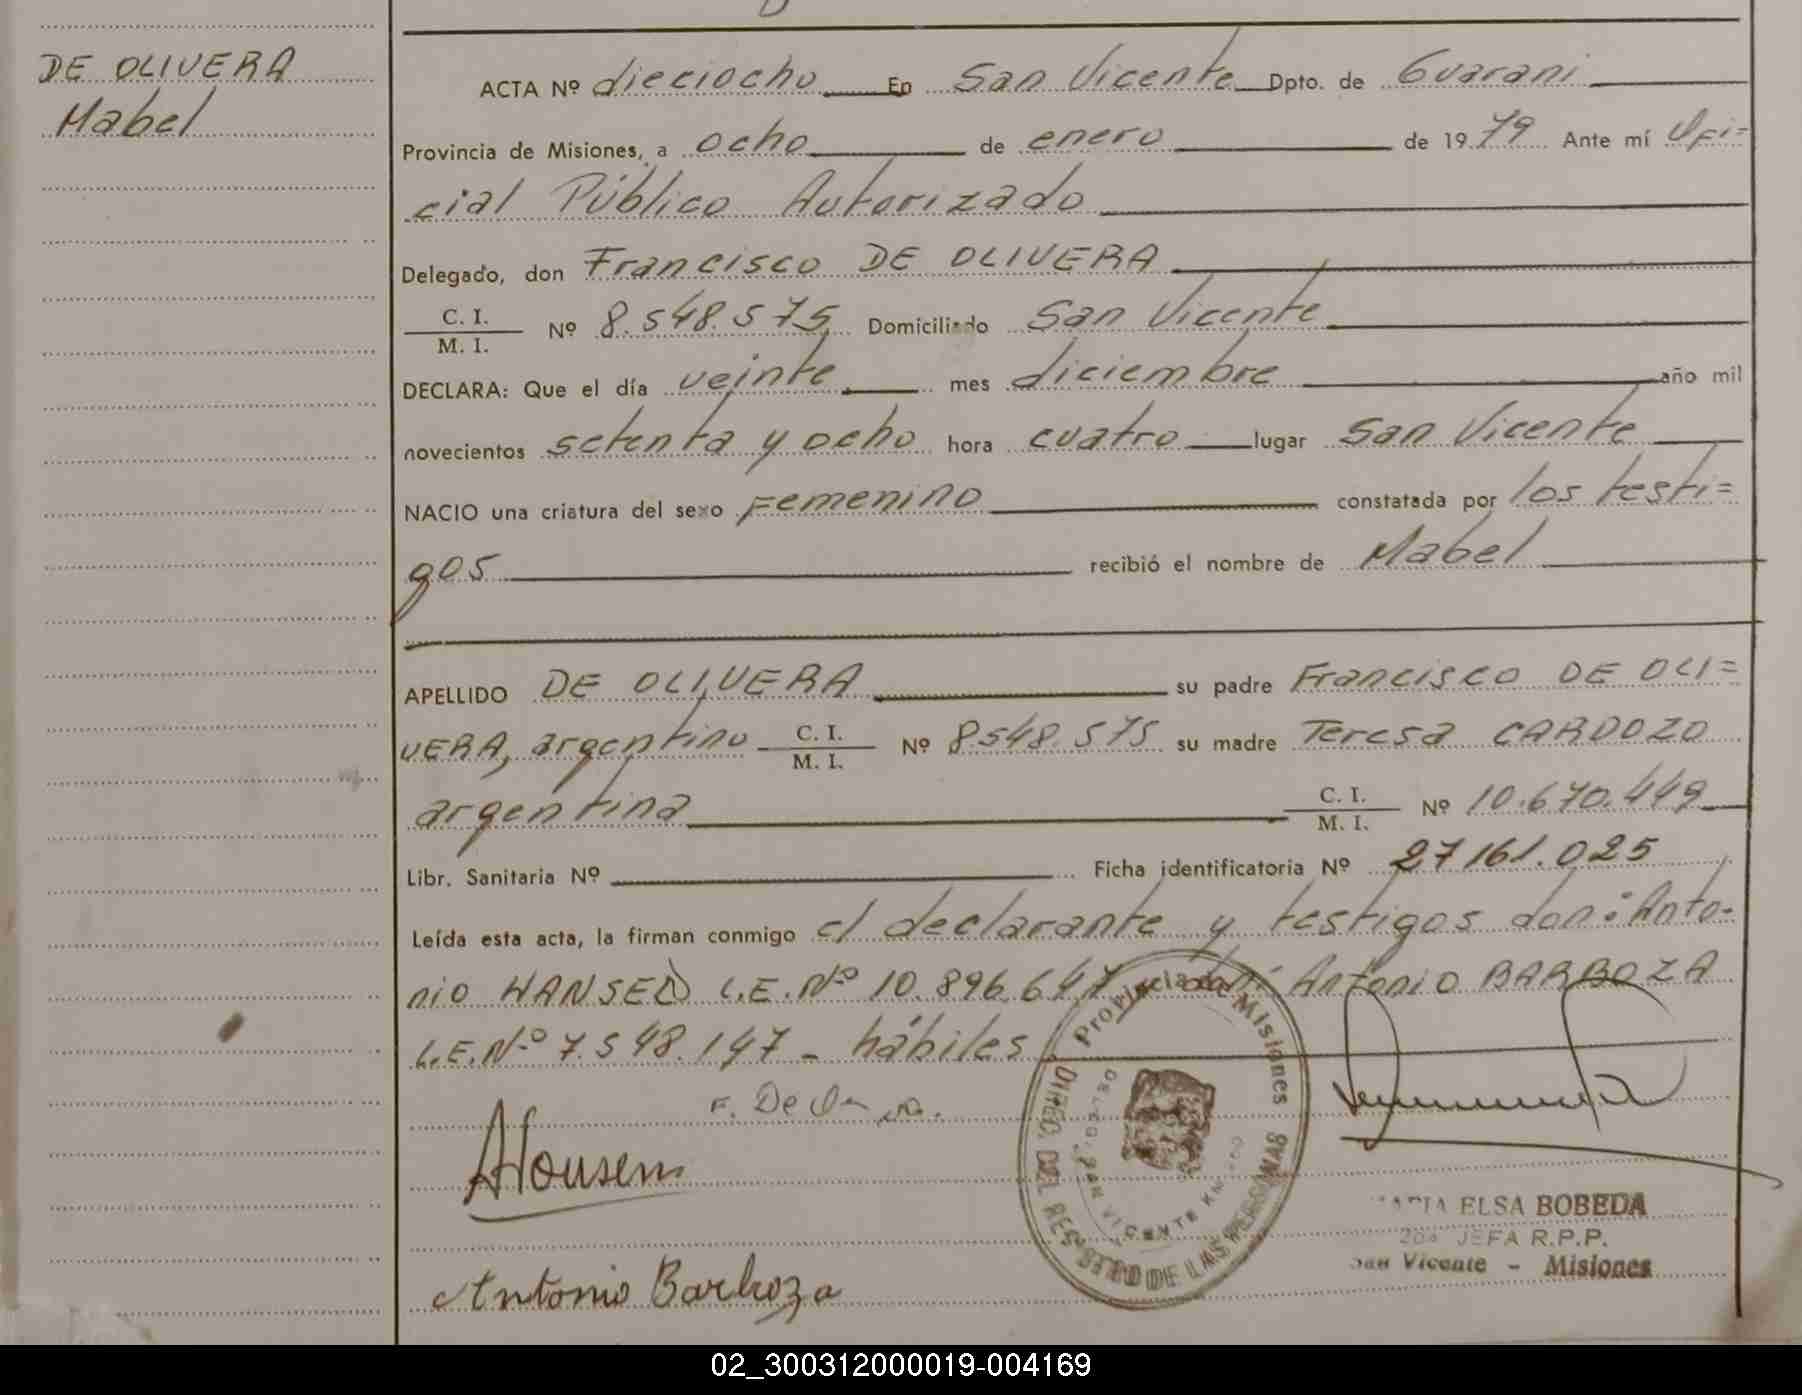 DE OLIVERA
Mabel
ACTA Nº dieciocho En San Vicente Dpto. de Guarani
Provincia de Misiones, a ocho de enero de 1979 Ante mí Ofi=
cial Público Autorizado
Delegado, don Francisco DE OLIVERA
C. I.
M. I. Nº 8.548.575 Domiciliado San Vicente
DECLARA: Que el día veinte mes diciembre año mil
novecientos setenta y ocho hora cuatro lugar San Vicente
NACIO una criatura del sexo Femenino constatada por los testi=
gos recibió el nombre de Mabel
APELLIDO DE OLIVERA su padre Francisco DE OLI=
VERA, argentino C. I. M. I. Nº 8.548.575 su madre Teresa CARDOZO
argentina C. I. M. I. Nº 10.670.449
Libr. Sanitaria Nº Ficha identificatoria Nº 27161.025
Leída esta acta, la firman conmigo el declarante y testigos don: Anto-
nio HANSED L.E.Nº 10.896.647 Antonio BARBOZA
L.E.Nº 7.548.147 - hábiles
Provincia de Misiones
DIREC. DEL REGISTRO DE LAS PERSONAS
SAN VICENTE
Antonio Barboza
ELSA BOBEDA
JEFA R.P.P.
San Vicente - Misiones
02_300312000019-004169